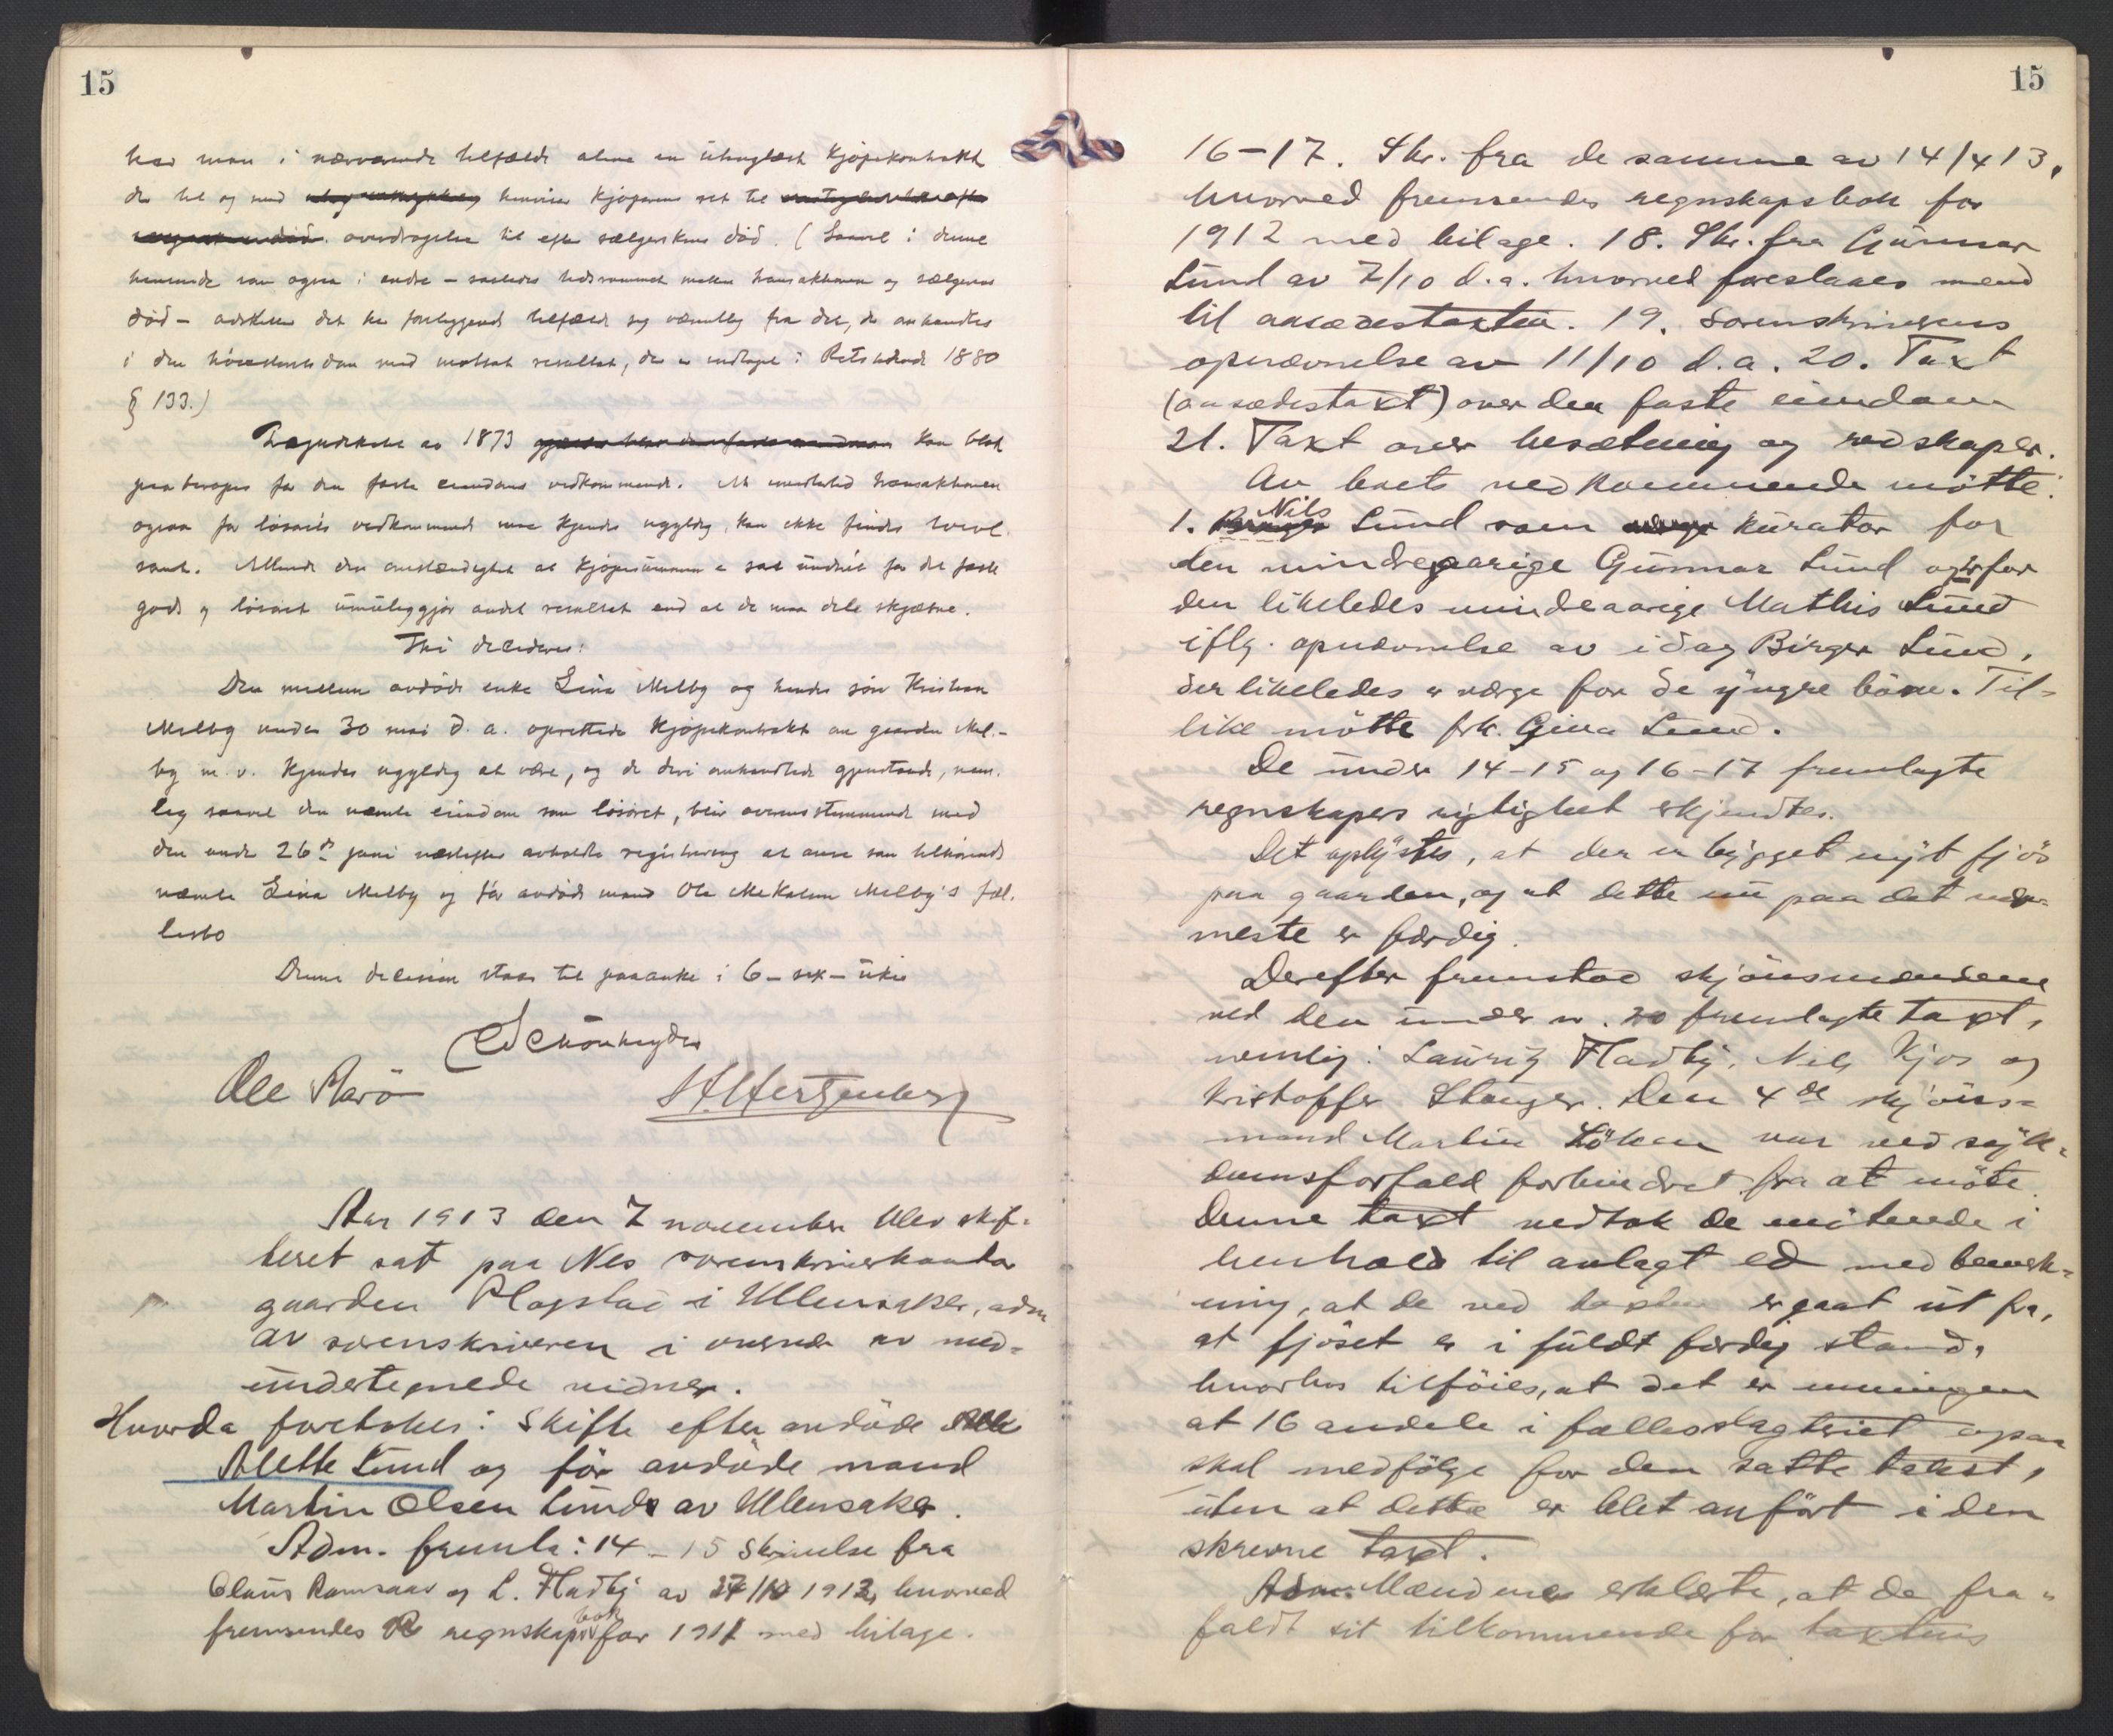 15
har man i nærværende tilfælde alene en utinglæst kjøpekontrakt
der til og med henviser kjøperens ret til
overdragelse til efter sælgerskens død. (Saavel i denne
henseende som ogsaa i andre – saaledes tidsrummet mellem transaktionen og sælgerens
død – adskiller det her foreliggende tilfælde sig væsentlig fra det, der omhandles
i den höiesteretsdom med motsat resultat, der er indtaget i Retstidende 1880
§ 133.)
av 1873 kan blot
paaberopes for den faste eiendoms vedkommende. At imidlertid transaktionen
ogsaa for lösörets vedkommende maa kjendes ugyldig, kan ikke findes tvivl-
somt. Allerede den omstændighet at kjøpesummen er sat under ét for det faste
gods og lösöret umuliggjör andet resultat end at de maa dele skjæbne.
Thi decideres:
Den mellem avdöde enke Lina Melby og hendes sön Kristian
Melby under 30 mai d.a. oprettede kjøpekontrakt om gaarden Mel-
by m.v. kjendes ugyldig at være, og de deri omhandlede gjenstande, nem-
lig saavel den nævnte eiendom som lösöret, blir overensstemmende med
den under 26de juni næstefter avholdte registrering at anse som tilhörende
nævnte Lina Melby og för avdöde mand Ole Melby's fæl-
lesbo
Denne decision staar til paaanke i 6 – sex – uker
Schönheyder
Ole Rarö
Aar 1913 den 7 november blev skif-
teret sat paa Nes sorenskriverkontor
gaarden Ragstad i Ullensaker, adm
av sorenskriveren i overvær av med-
undertegnede vidner.
Hvorda foretokes: Skifte efter avdöde
Alette Lund og för avdöde mand
Martin Olsen Lund av Ullensaker.
Adm. fremla: 14 – 15 Skrivelse fra
Olaus Ramsaas og L. Fladby av 1913, hvorved
fremsendes regnskapsbok for 1911 med bilage.
15
16–17. Skr. fra de samme av 14/4 13,
hvorved fremsendes regnskapsbok for
1912 med bilage. 18. Skr. fra Gunnar
Lund av 7/10 d.a. hvorved foreslaaes mænd
til aasædestaxten. 19. Sorenskriverens
opnævnelse av 11/10 d.a. 20. Taxt
(aasædestaxt) over den faste eiendom
21. Taxt over besætning og redskaper.
Av boets vedkommende mötte:
1. Nils Lund som kurator for
den mindreaarige Gunnar Lund og for
den likeledes mindeaarige Mathis Lund
iflg. opnævnelse av idag Birger Lund,
der likeledes er værge for de yngre börn. Til-
like mötte frk. Gina Lund.
De under 14–15 og 16–17 fremlagte
regnskapers rigtighet erkjendtes.
Det oplystes, at der er bygget nyt fjös
paa gaarden, og at dette nu paa det nær-
meste er færdig.
Derefter fremstod skjönsmændene
ved den under nr. 20 fremlagte taxt,
nemlig: Lauritz Fladby, Nils Kjos og
Kristoffer Stanger. Den 4de skjöns-
mand Martin Löken var ved syk-
domsforfald forhindret fra at möte.
Denne taxt vedtok de mötende i
henhold til avlagt ed med bemerk-
ning, at de ved taxten er gaat ut fra,
at fjöset er i fuldt færdig stand,
hvorhos tilföies, at det er meningen
at 16 andele i fællesslagteriet ogsaa
skal medfölge for den satte takst,
uten at dette er blet anfört i den
skrevne taxt.
Mændene erklærte, at de fra-
faldt sit tilkommende for taxtens